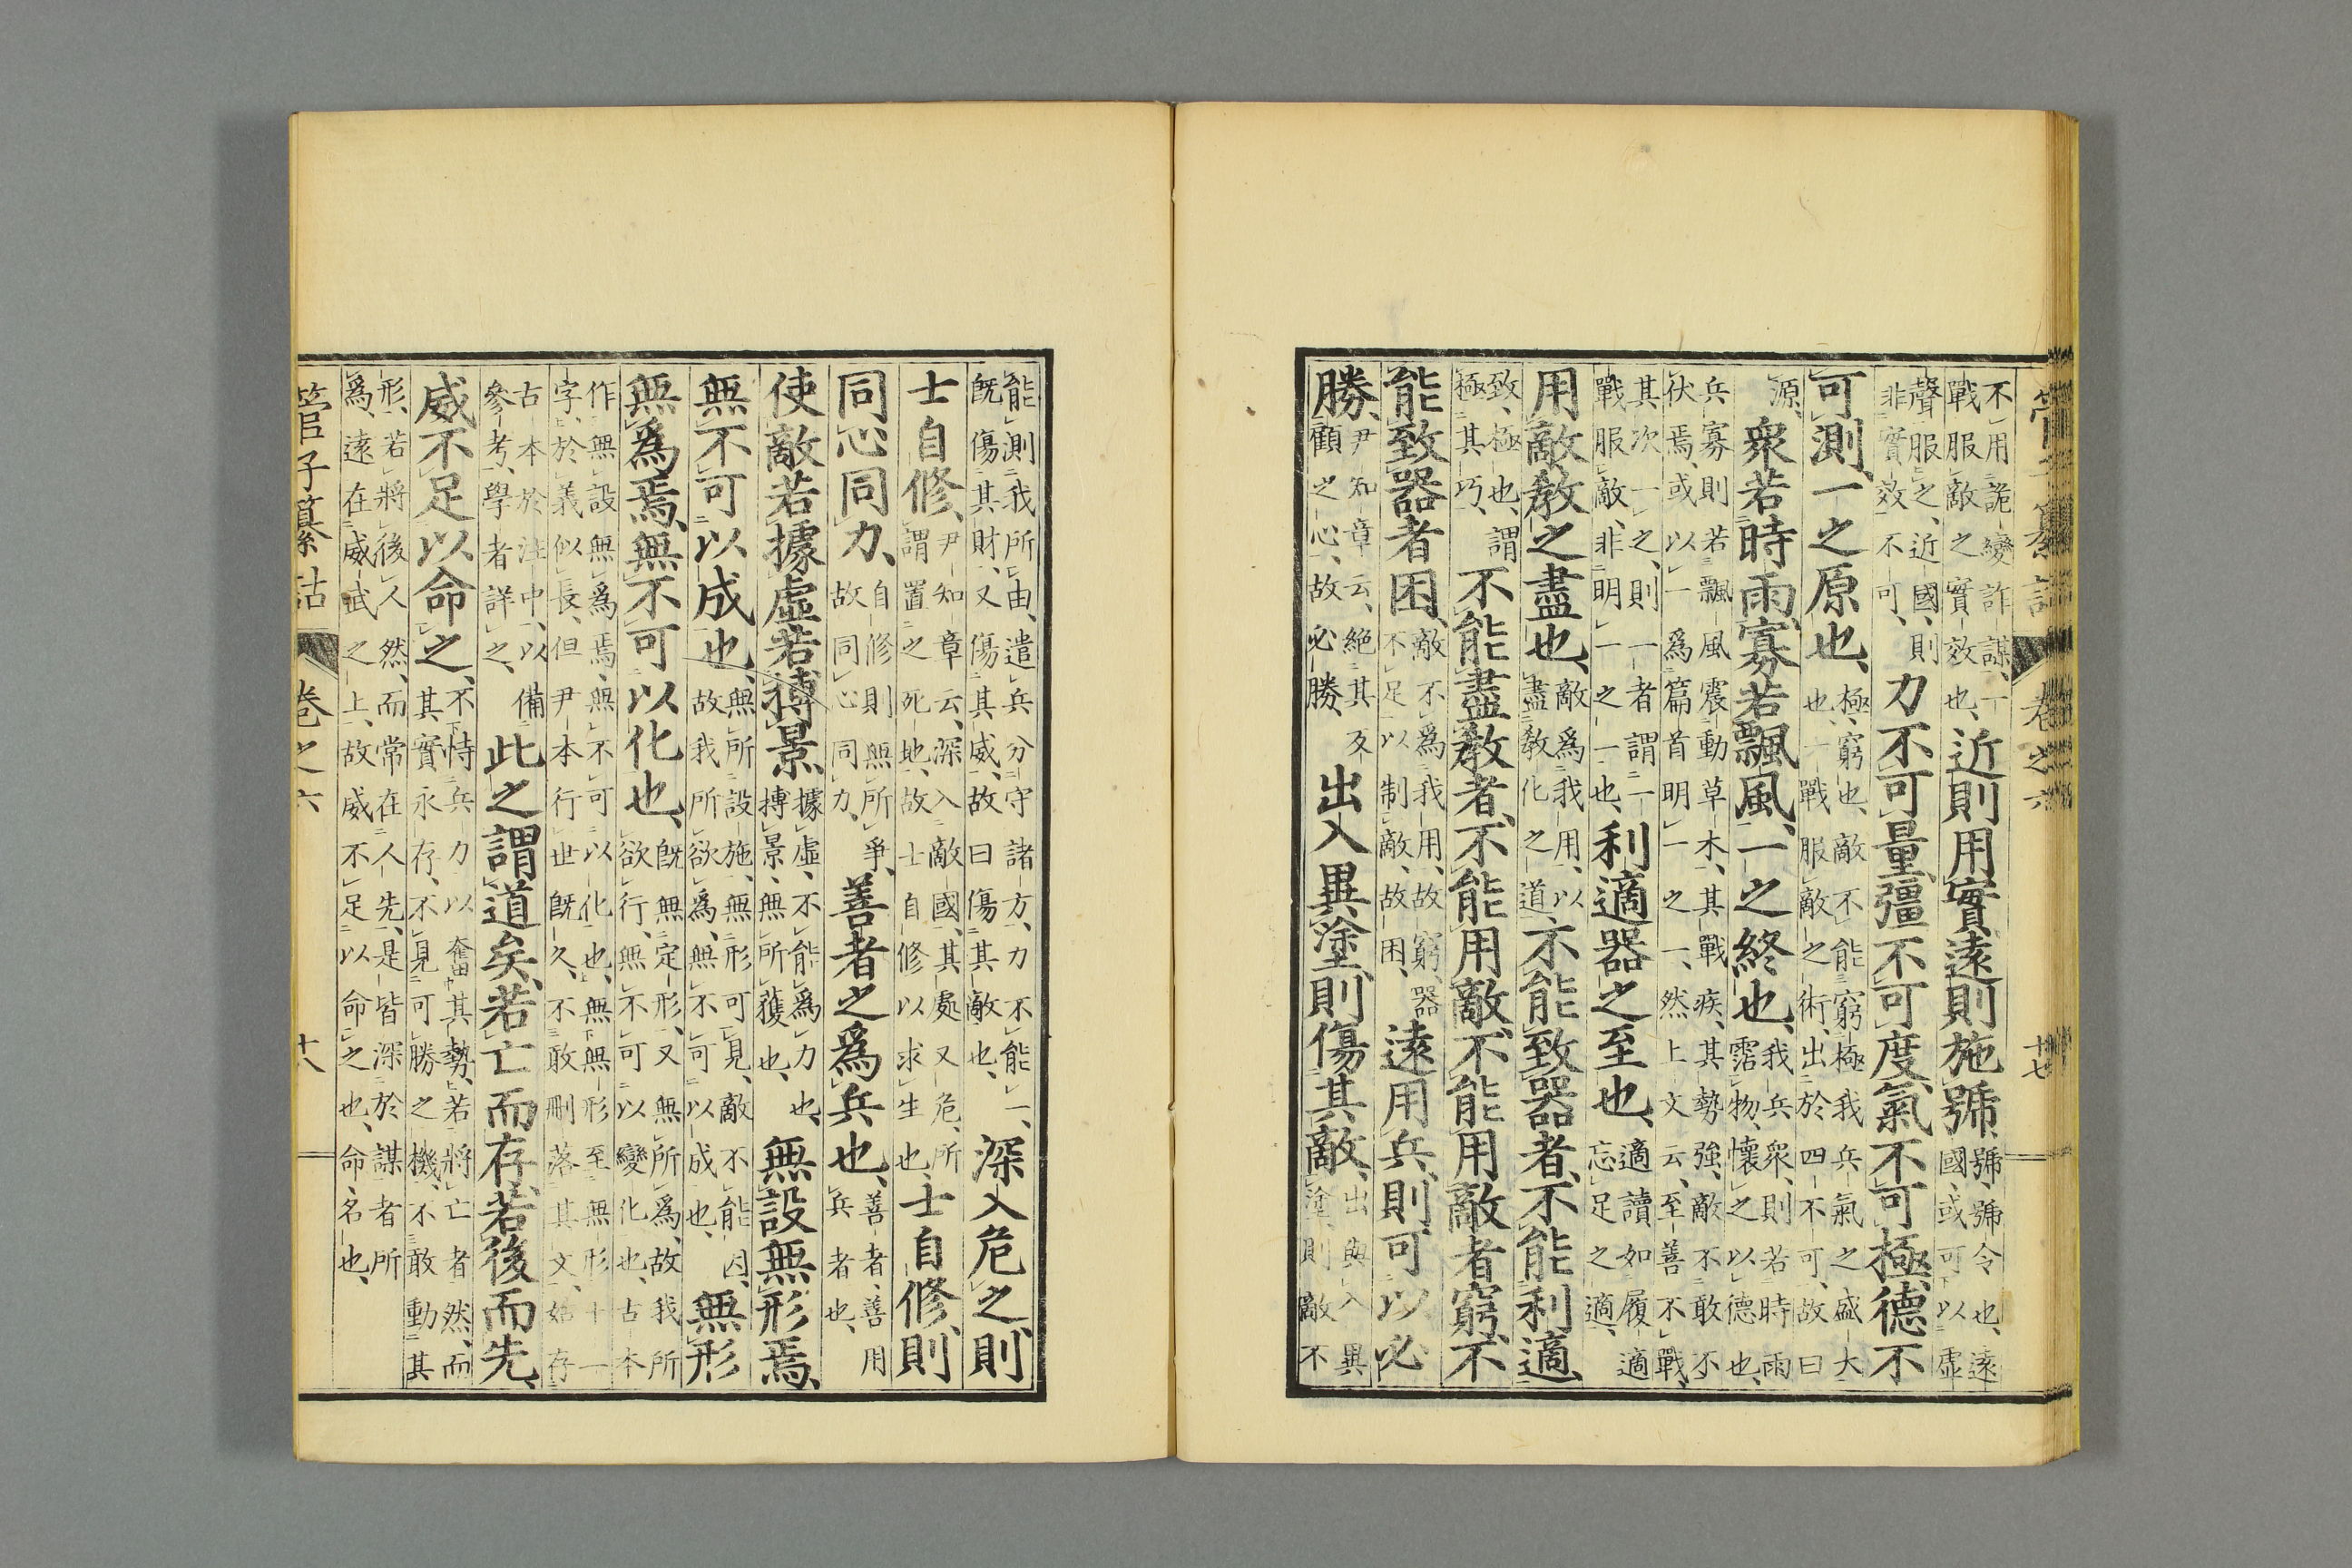 管子纂詁 卷之六 十七
不用詭變詐謀、一
戰服敵之實效也、
近則用實、遠則施號、
號、號令也、遠
國、或可以虛
聲服之、近國、則
非實效不可、
力不可量、彊不可度、氣不可極、德不
可測、一之原也、
極、窮也、敵不能窮極我兵氣之盛大
也、一戰服敵之術、出於四不可、故曰
源、
衆若時雨、寡若飄風、一之終也、
我兵衆、則若時雨
霑物、懷之以德也、
兵寡則若飄風震動草木、其戰疾、其勢強、敵不敢不
伏焉、或以一爲篇首明一之一、然上文云、至善不戰、
其次一之、則一者謂一
戰服敵、非明一之一也、
利適、器之至也、
適讀如履適
忘足之適、
用敵、敎之盡也、
敵爲我用、以
盡敎化之道、
不能致器者、不能利適、
致、極也、謂
極其巧、
不能盡敎者、不能用敵、不能用敵者窮、不
能致器者困、
敵不爲我用、故窮、器
不足以制敵、故困、
遠用兵、則可以必
勝、
尹知章云、絕其反
顧之心、故必勝、
出入異塗、則傷其敵、
出與入異
塗、則敵不
能測我所由、遣兵分守諸方、力不能一、
既傷其財、又傷其威、故曰傷其敵也、
深入危之、則
士自修、
尹知章云、深入敵國、其處又危、所
謂置之死地、故士自修以求生也、
士自修、則
同心同力、
自修則無所爭、
故同心同力、
善者之爲兵也、
善者、善用
兵者也、
使敵若據虛、若搏景、
據虛、不能爲力也、
搏景、無所獲也、
無設無形焉、
無不可以成也、
無所設施、無形可見、敵不能因、
故我所欲爲、無不可以成也、
無形
無爲焉、無不可以化也、
既無定形、又無所爲、故我所
欲行、無不可以變化也、古本
作無設無爲焉、無不可以化也、無無形至無形十一
字、於義似長、但尹本行世既久、不敢刪落其文、姑存
古本於注中、以備
參考、學者詳之、
此之謂道矣、若亡而存、若後而先、
威不足以命之、
不恃兵力以奮其勢、若將亡者然、而
其實永存、不見可勝之機、不敢動其
形、若將後人然、而常在人先、是皆深於謀者所
爲、遠在威武之上、故威不足以命之也、命、名也、
管子纂詁 卷之六 十八